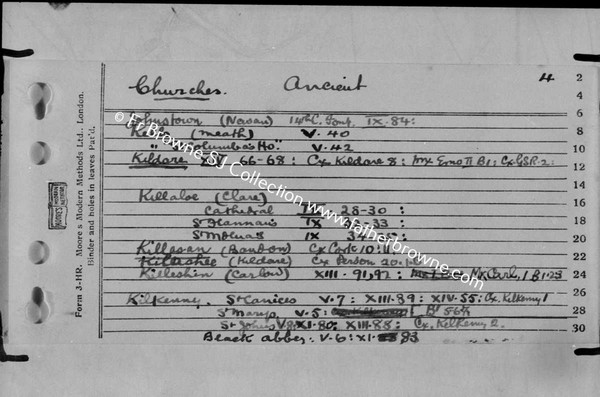 Churches. Ancient 4
Johnstown (Navan) 14th C. Font. IX. 84:
(Meath) V. 40
" Columba's Ho." V. 42
Kildare XVI. 66-68: Cx Kildare 8:
Killaloe (Clare)
Cathedral 28-30:
St Flannan's IX 33:
St Molua's IX 34
Killasan (Bandon) Cx Cork 10:
Killeshee (Kildare) Cx Person 20.
Killeshin (Carlow) XIII. 91, 92: Mx Carl, 1 B1.23
Kilkenny. St Canices V. 7: XIII. 89: XIV. 55: Cx. Kilkenny 1
St Marys V. 5:
St John's XI. 80: XIII. 88: Cx. Kilkenny 2.
Black abbey. V. 6: XI. 83
2
4
6
8
10
12
14
16
18
20
22
24
26
28
30
Form 3-HR. Moore's Modern Methods Ltd., London.
Binder and holes in leaves Pat'd.
Fr Browne SJ Collection www.fatherbrowne.com